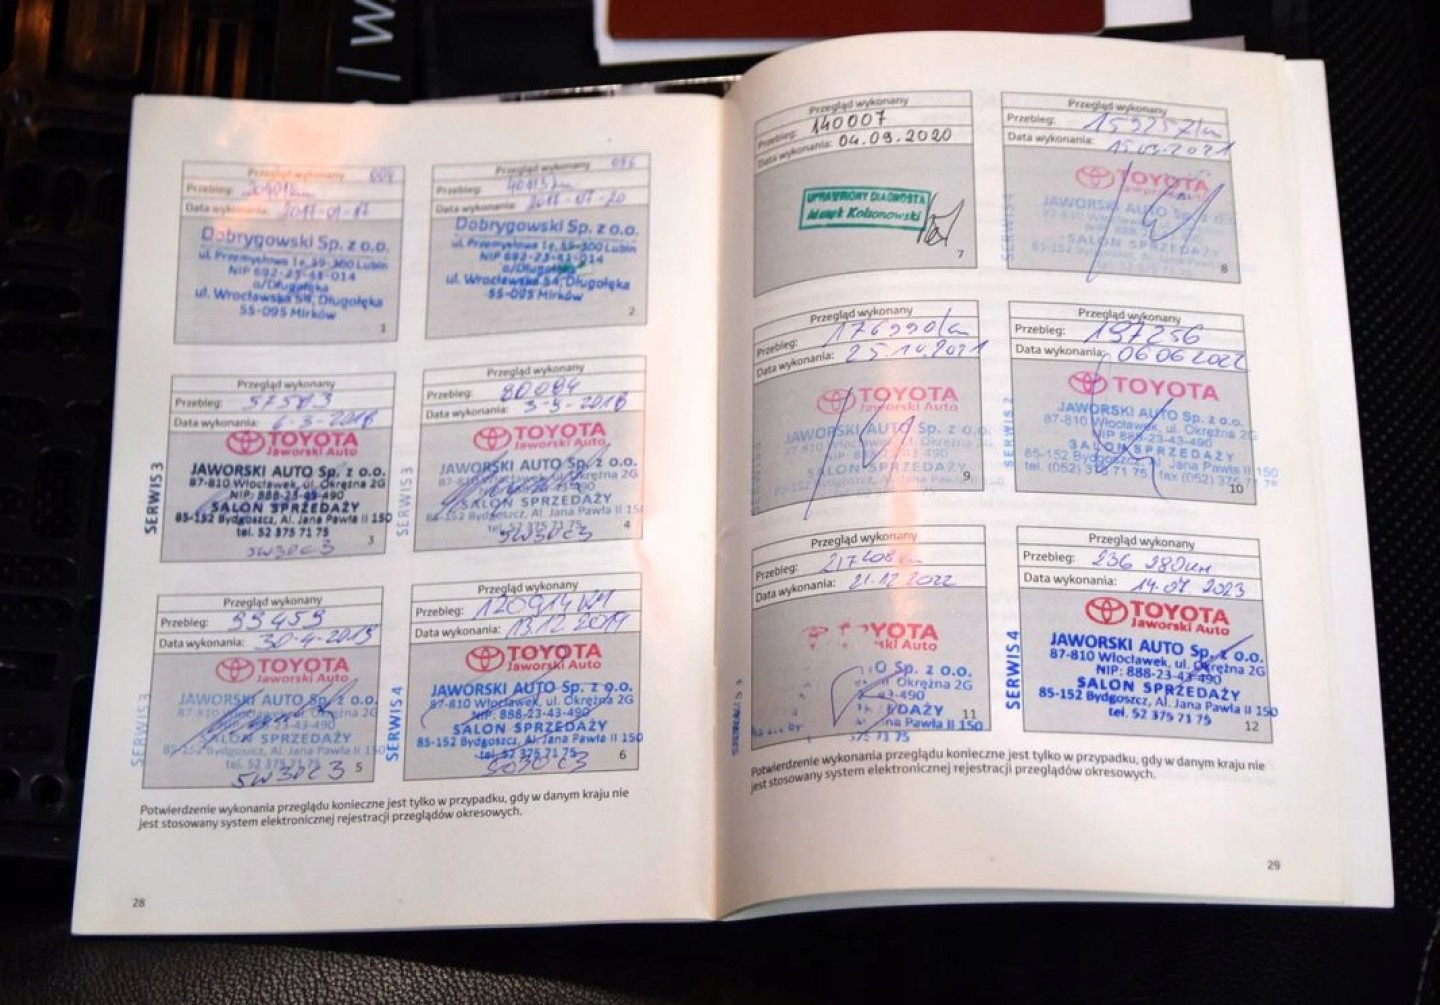 Przegląd wykonany
Przebieg: 20401km
Data wykonania: 2017-01-17
Dobrygowski Sp. z o.o.
ul. Przemysłowa 1e, 59-300 Lubin
NIP 692-23-41-014
o/Długołęka
ul. Wrocławska 54, Długołęka
55-095 Mirków
1
Przegląd wykonany
Przebieg:
Data wykonania: 2017-07-20
Dobrygowski Sp. z o.o.
ul. Przemysłowa 1e, 59-300 Lubin
NIP 692-23-41-014
o/Długołęka
ul. Wrocławska 54, Długołęka
55-095 Mirków
2
Przegląd wykonany
Przebieg: 57583
Data wykonania: 6-3-2018
TOYOTA
Jaworski Auto
JAWORSKI AUTO Sp. z o.o.
87-810 Włocławek, ul. Okrężna 2G
NIP: 888-23-43-490
SALON SPRZEDAŻY
85-152 Bydgoszcz, Al. Jana Pawła II 150
tel. 52 375 71 75
SERWIS 3
5W30C3
3
Przegląd wykonany
Przebieg: 80084
Data wykonania: 3-9-2018
TOYOTA
Jaworski Auto
JAWORSKI AUTO Sp. z o.o.
87-810 Włocławek, ul. Okrężna 2G
SALON SPRZEDAŻY
85-152 Bydgoszcz, Al. Jana Pawła II 150
tel. 52 375 71 75
SERWIS 3
5W30C3
4
Przegląd wykonany
Przebieg: 99459
Data wykonania: 30-4-2019
TOYOTA
Jaworski Auto
JAWORSKI AUTO Sp. z o.o.
87-810 Włocławek, ul. Okrężna 2G
SALON SPRZEDAŻY
85-152 Bydgoszcz, Al. Jana Pawła II 150
tel. 52 375 71 75
SERWIS 3
5W30C3
5
Przegląd wykonany
Przebieg: 120914KM
Data wykonania: 13.12.2019
TOYOTA
Jaworski Auto
JAWORSKI AUTO Sp. z o.o.
87-810 Włocławek, ul. Okrężna 2G
NIP: 888-23-43-490
SALON SPRZEDAŻY
85-152 Bydgoszcz, Al. Jana Pawła II 150
tel. 52 375 71 75
SERWIS 4
6
Potwierdzenie wykonania przeglądu konieczne jest tylko w przypadku, gdy w danym kraju nie
jest stosowany system elektronicznej rejestracji przeglądów okresowych.
28
Przegląd wykonany
Przebieg: 140007
Data wykonania: 04.09.2020
UPRAWNIONY DIAGNOSTA
7
Przegląd wykonany
Przebieg: 159257km
Data wykonania: 15.03.2021
TOYOTA
JAWORSKI AUTO Sp. z o.o.
SALON SPRZEDAŻY
SERWIS 4
8
Przegląd wykonany
Przebieg: 176990km
Data wykonania: 25.10.2021
TOYOTA
Jaworski Auto
JAWORSKI AUTO Sp. z o.o.
87-810 Włocławek, ul. Okrężna 2G
SALON SPRZEDAŻY
9
Przegląd wykonany
Przebieg: 197256
Data wykonania: 06.06.2022
TOYOTA
JAWORSKI AUTO Sp. z o.o.
87-810 Włocławek, ul. Okrężna 2G
NIP 888-23-43-490
SALON SPRZEDAŻY
85-152 Bydgoszcz, Al. Jana Pawła II 150
tel. (052) 375 71 75, fax (052) 375
SERWIS 2
10
Przegląd wykonany
Przebieg: 217208km
Data wykonania: 21.12.2022
YOTA
ski Auto
O Sp. z o.o.
Okrężna 2G
-490
EDAŻY
na Pawła II 150
375 71 75
11
Przegląd wykonany
Przebieg: 236 280km
Data wykonania: 14.07.2023
TOYOTA
Jaworski Auto
JAWORSKI AUTO Sp. z o.o.
87-810 Włocławek, ul. Okrężna 2G
NIP: 888-23-43-490
SALON SPRZEDAŻY
85-152 Bydgoszcz, Al. Jana Pawła II 150
tel. 52 375 71 75
SERWIS 4
12
Potwierdzenie wykonania przeglądu konieczne jest tylko w przypadku, gdy w danym kraju nie
jest stosowany system elektronicznej rejestracji przeglądów okresowych.
29